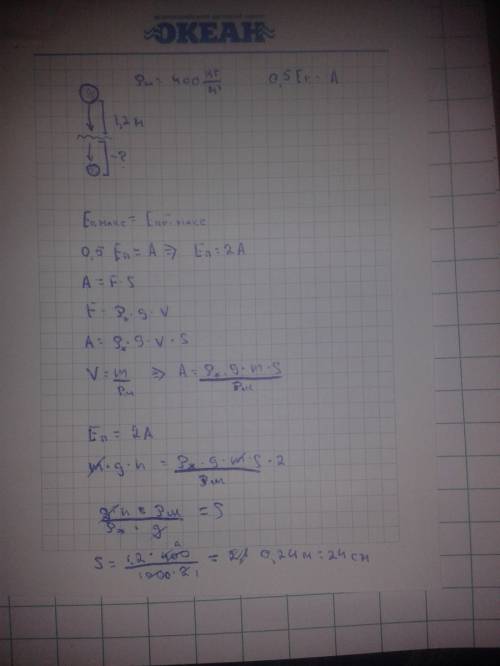 ОКЕАН
ρм = 400 кг/м³ 0,5 Eк = A
1,2 м
-?
Eп макс = Eк макс
0,5 Eп = A => Eп = 2A
A = F · S
F = ρж · g · V
A = ρж · g · V · S
V = m/ρм => A = ρж · g · m · S/ρм
Eп = 2A
m · g · h = ρж · g · m · S/ρм · 2
g · h · ρм/ρж · g = S
S = 1,2 · 400/1000 · 2 = 0,24 м = 24 см